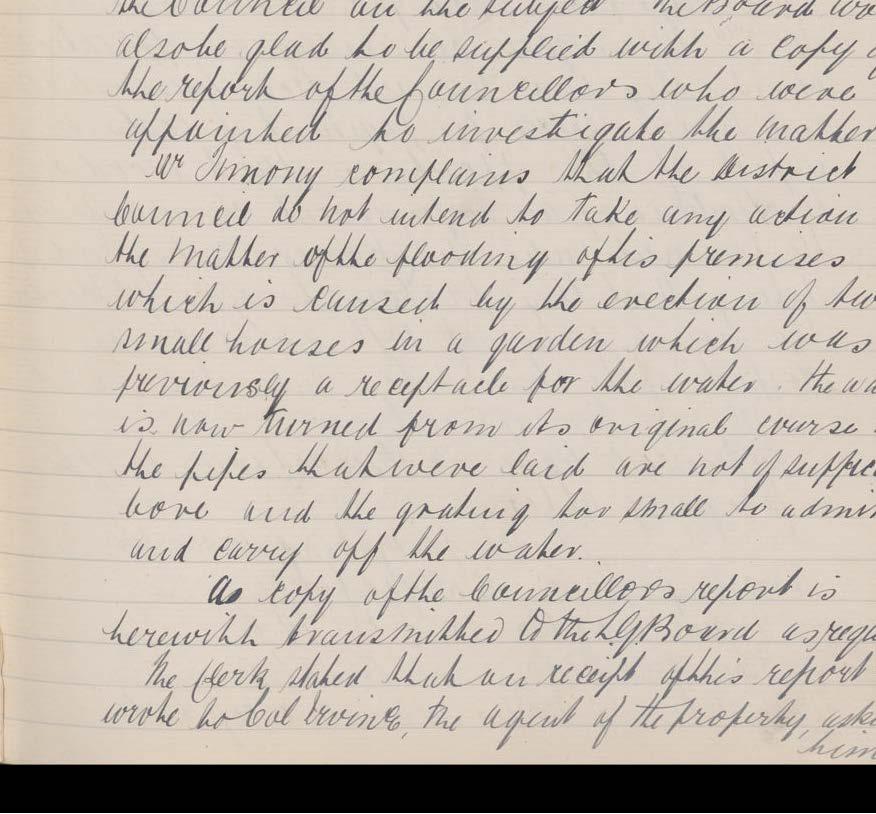 the Council on the subject The Board wo
also be glad to be supplied with a copy o
the report of the Councillors who were
appointed to investigate the matter
Mr Timony complains that the District
Council do not intend to take any action
the matter of the flooding of his premises
which is caused by the erection of tw
small houses in a garden which was
previously a receptacle for the water. The wa
is now turned from its original course
the pipes that were laid are not of suffici
bore and the grating too small to admi
and carry off the water.
As copy of the Councillors report is
herewith transmitted to the L.G. Board as requ
The Clerk stated that on receipt of this report
wrote to Col Irvine, the agent of the property, aski
him